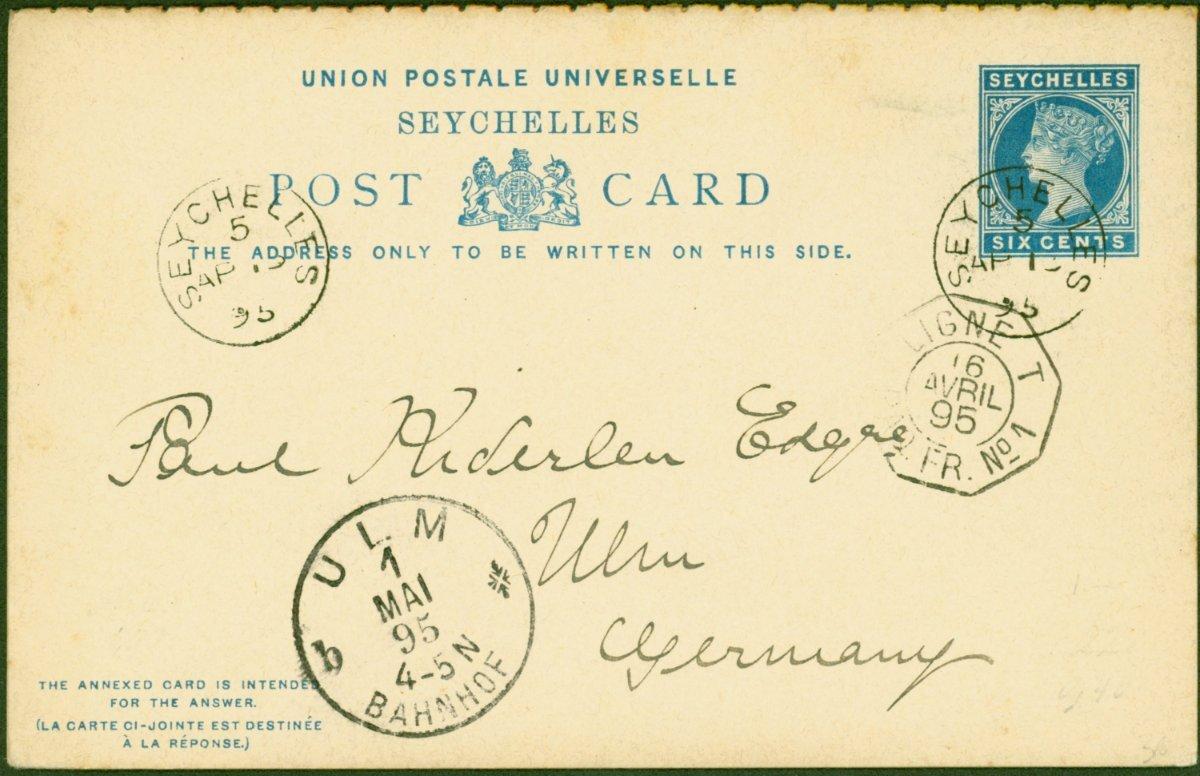 UNION POSTALE UNIVERSELLE
SEYCHELLES
POST CARD
THE ADDRESS ONLY TO BE WRITTEN ON THIS SIDE.
SEYCHELLES
SIX CENTS
SEYCHELLES
5
AP
95
SEYCHELLES
5
AP
95
LIGNE T
16
AVRIL
95
FR. No 1
Paul Kiderlen Edgar
Ulm
Germany
ULM
1
MAI
95
4-5 N
b
BAHNHOF
THE ANNEXED CARD IS INTENDED
FOR THE ANSWER.
(LA CARTE CI-JOINTE EST DESTINÉE
À LA RÉPONSE.)